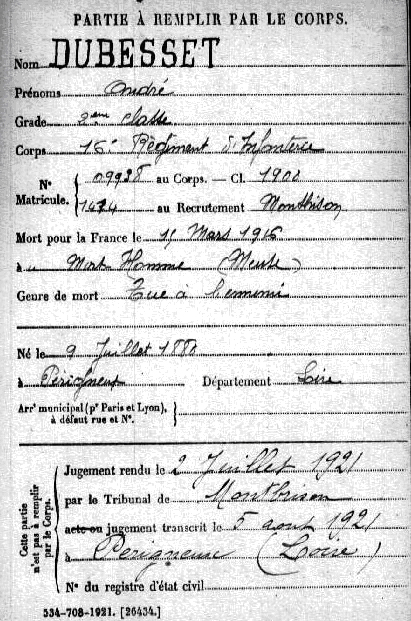 PARTIE À REMPLIR PAR LE CORPS.
Nom DUBESSET
Prénoms André
Grade 2eme classe
Corps 16e Régiment d'Infanterie
N° Matricule. 09938 au Corps. — Cl. 1900
1424 au Recrutement Montbrison
Mort pour la France le 15 Mars 1916
à Mort Homme (Meuse)
Genre de mort Tué à l'ennemi
Né le 9 Juillet 1880
à Périgneux Département Loire
Arrt municipal (pr Paris et Lyon), à défaut rue et N°.
Cette partie n'est pas à remplir par le Corps.
Jugement rendu le 2 Juillet 1921
par le Tribunal de Montbrison
acte ou jugement transcrit le 5 août 1921
à Périgneux (Loire)
N° du registre d'état civil
534-708-1921. [26434.]